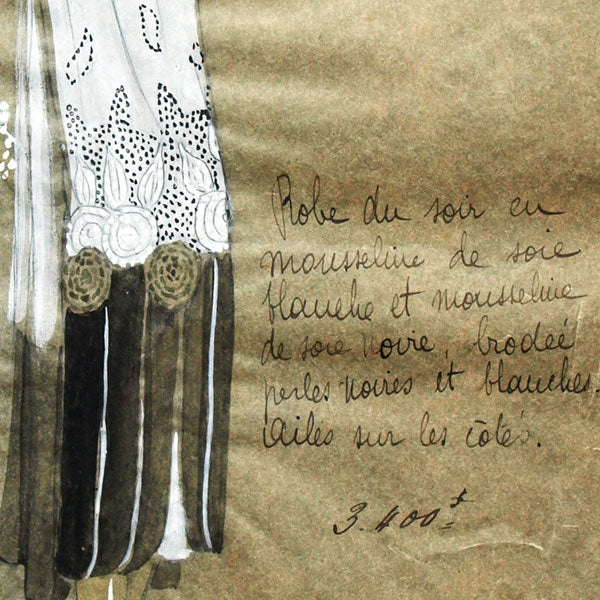 Robe du soir en
mousseline de soie
blanche et mousseline
de soie noire, brodée
perles noires et blanches.
Ailes sur les côtés.
3.400 f